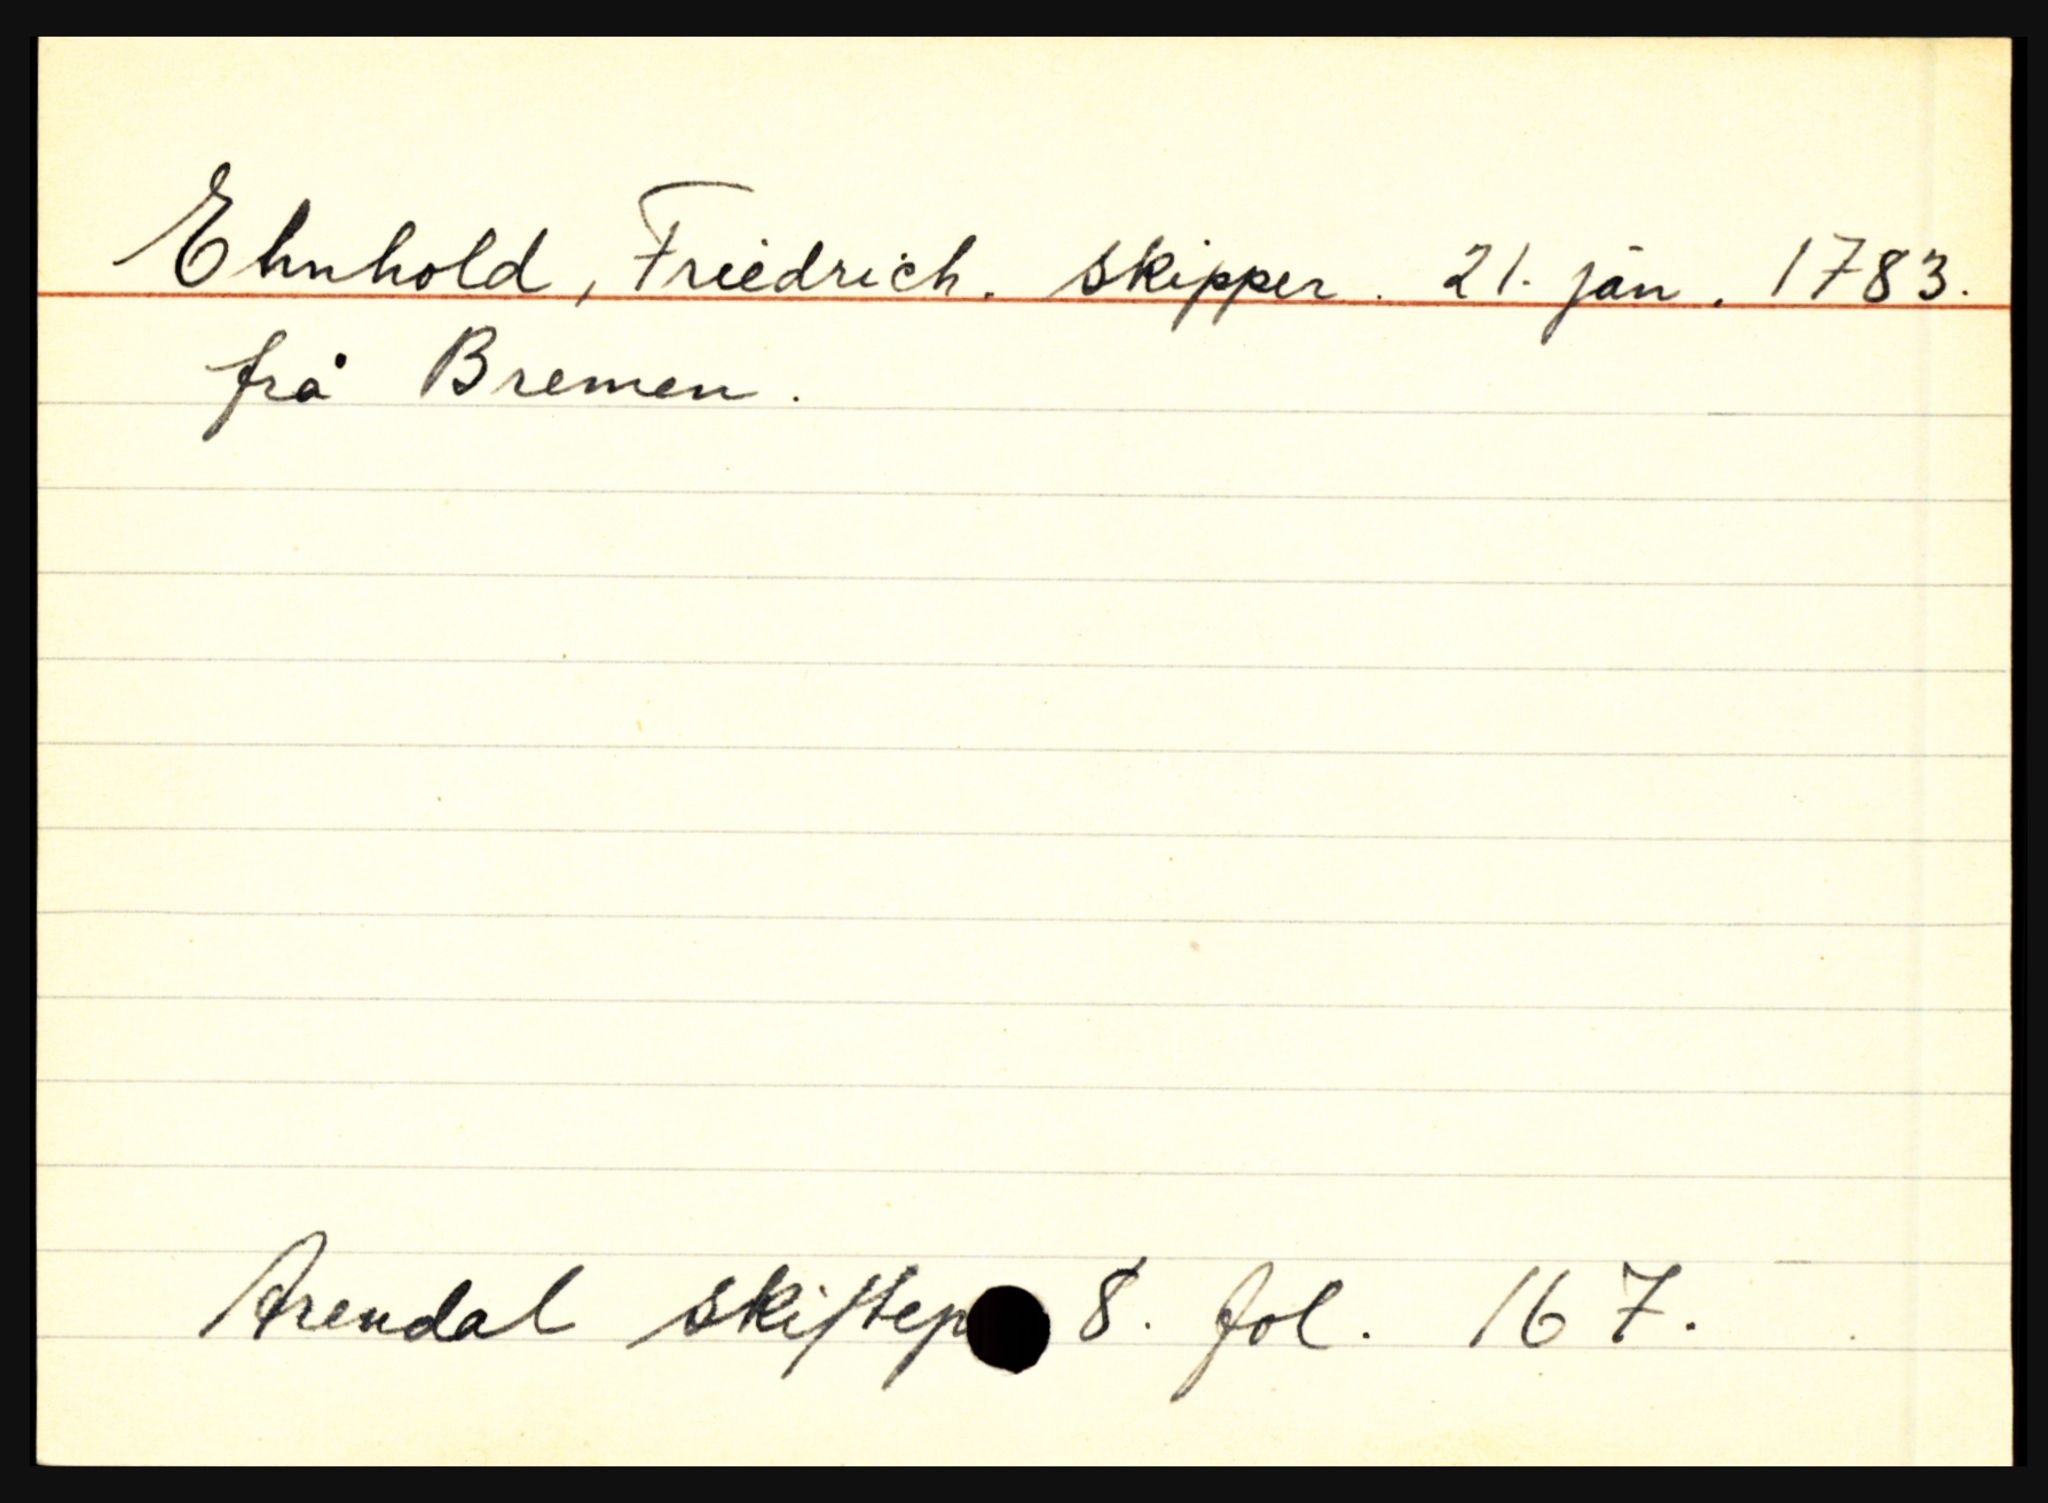 Ehnhold, Friedrich. skipper. 21. jan. 1783.
frå Bremen.
Arendal skiftep 8. fol. 167.